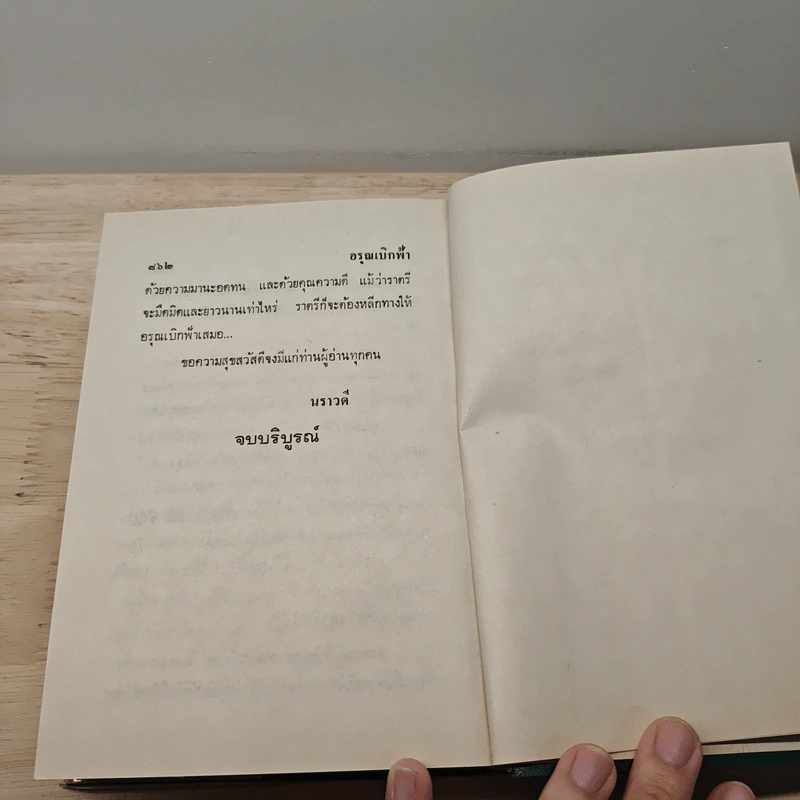 ๘๖๒ อรุณเบิกฟ้า
ด้วยความมานะอดทน และด้วยคุณความดี แม้ว่าราตรี
จะมืดมิดและยาวนานเท่าไหร่ ราตรีก็จะต้องหลีกทางให้
อรุณเบิกฟ้าเสมอ...
ขอความสุขสวัสดีจงมีแก่ท่านผู้อ่านทุกคน
นราวดี
จบบริบูรณ์